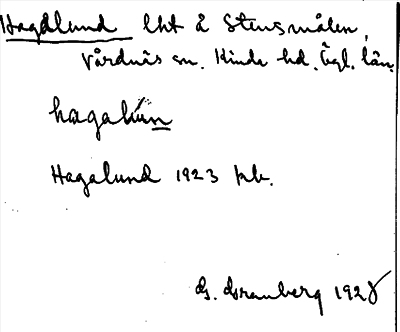 Hagalund lht å Stensmålen,
Vårdnäs sn. Kinda hd. Ögl. län.
hagalun
Hagalund 1923 jrb.
G. Granberg 1928